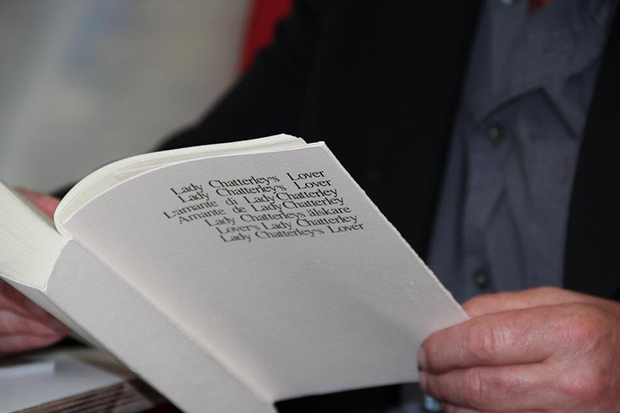 Lady Chatterley's Lover
Lady Chatterley's Lover
L'amante di Lady Chatterley
Amante de Lady Chatterley
Lady Chatterleys älskare
Lover's Lady Chatterley
Lady Chatterley's Lover